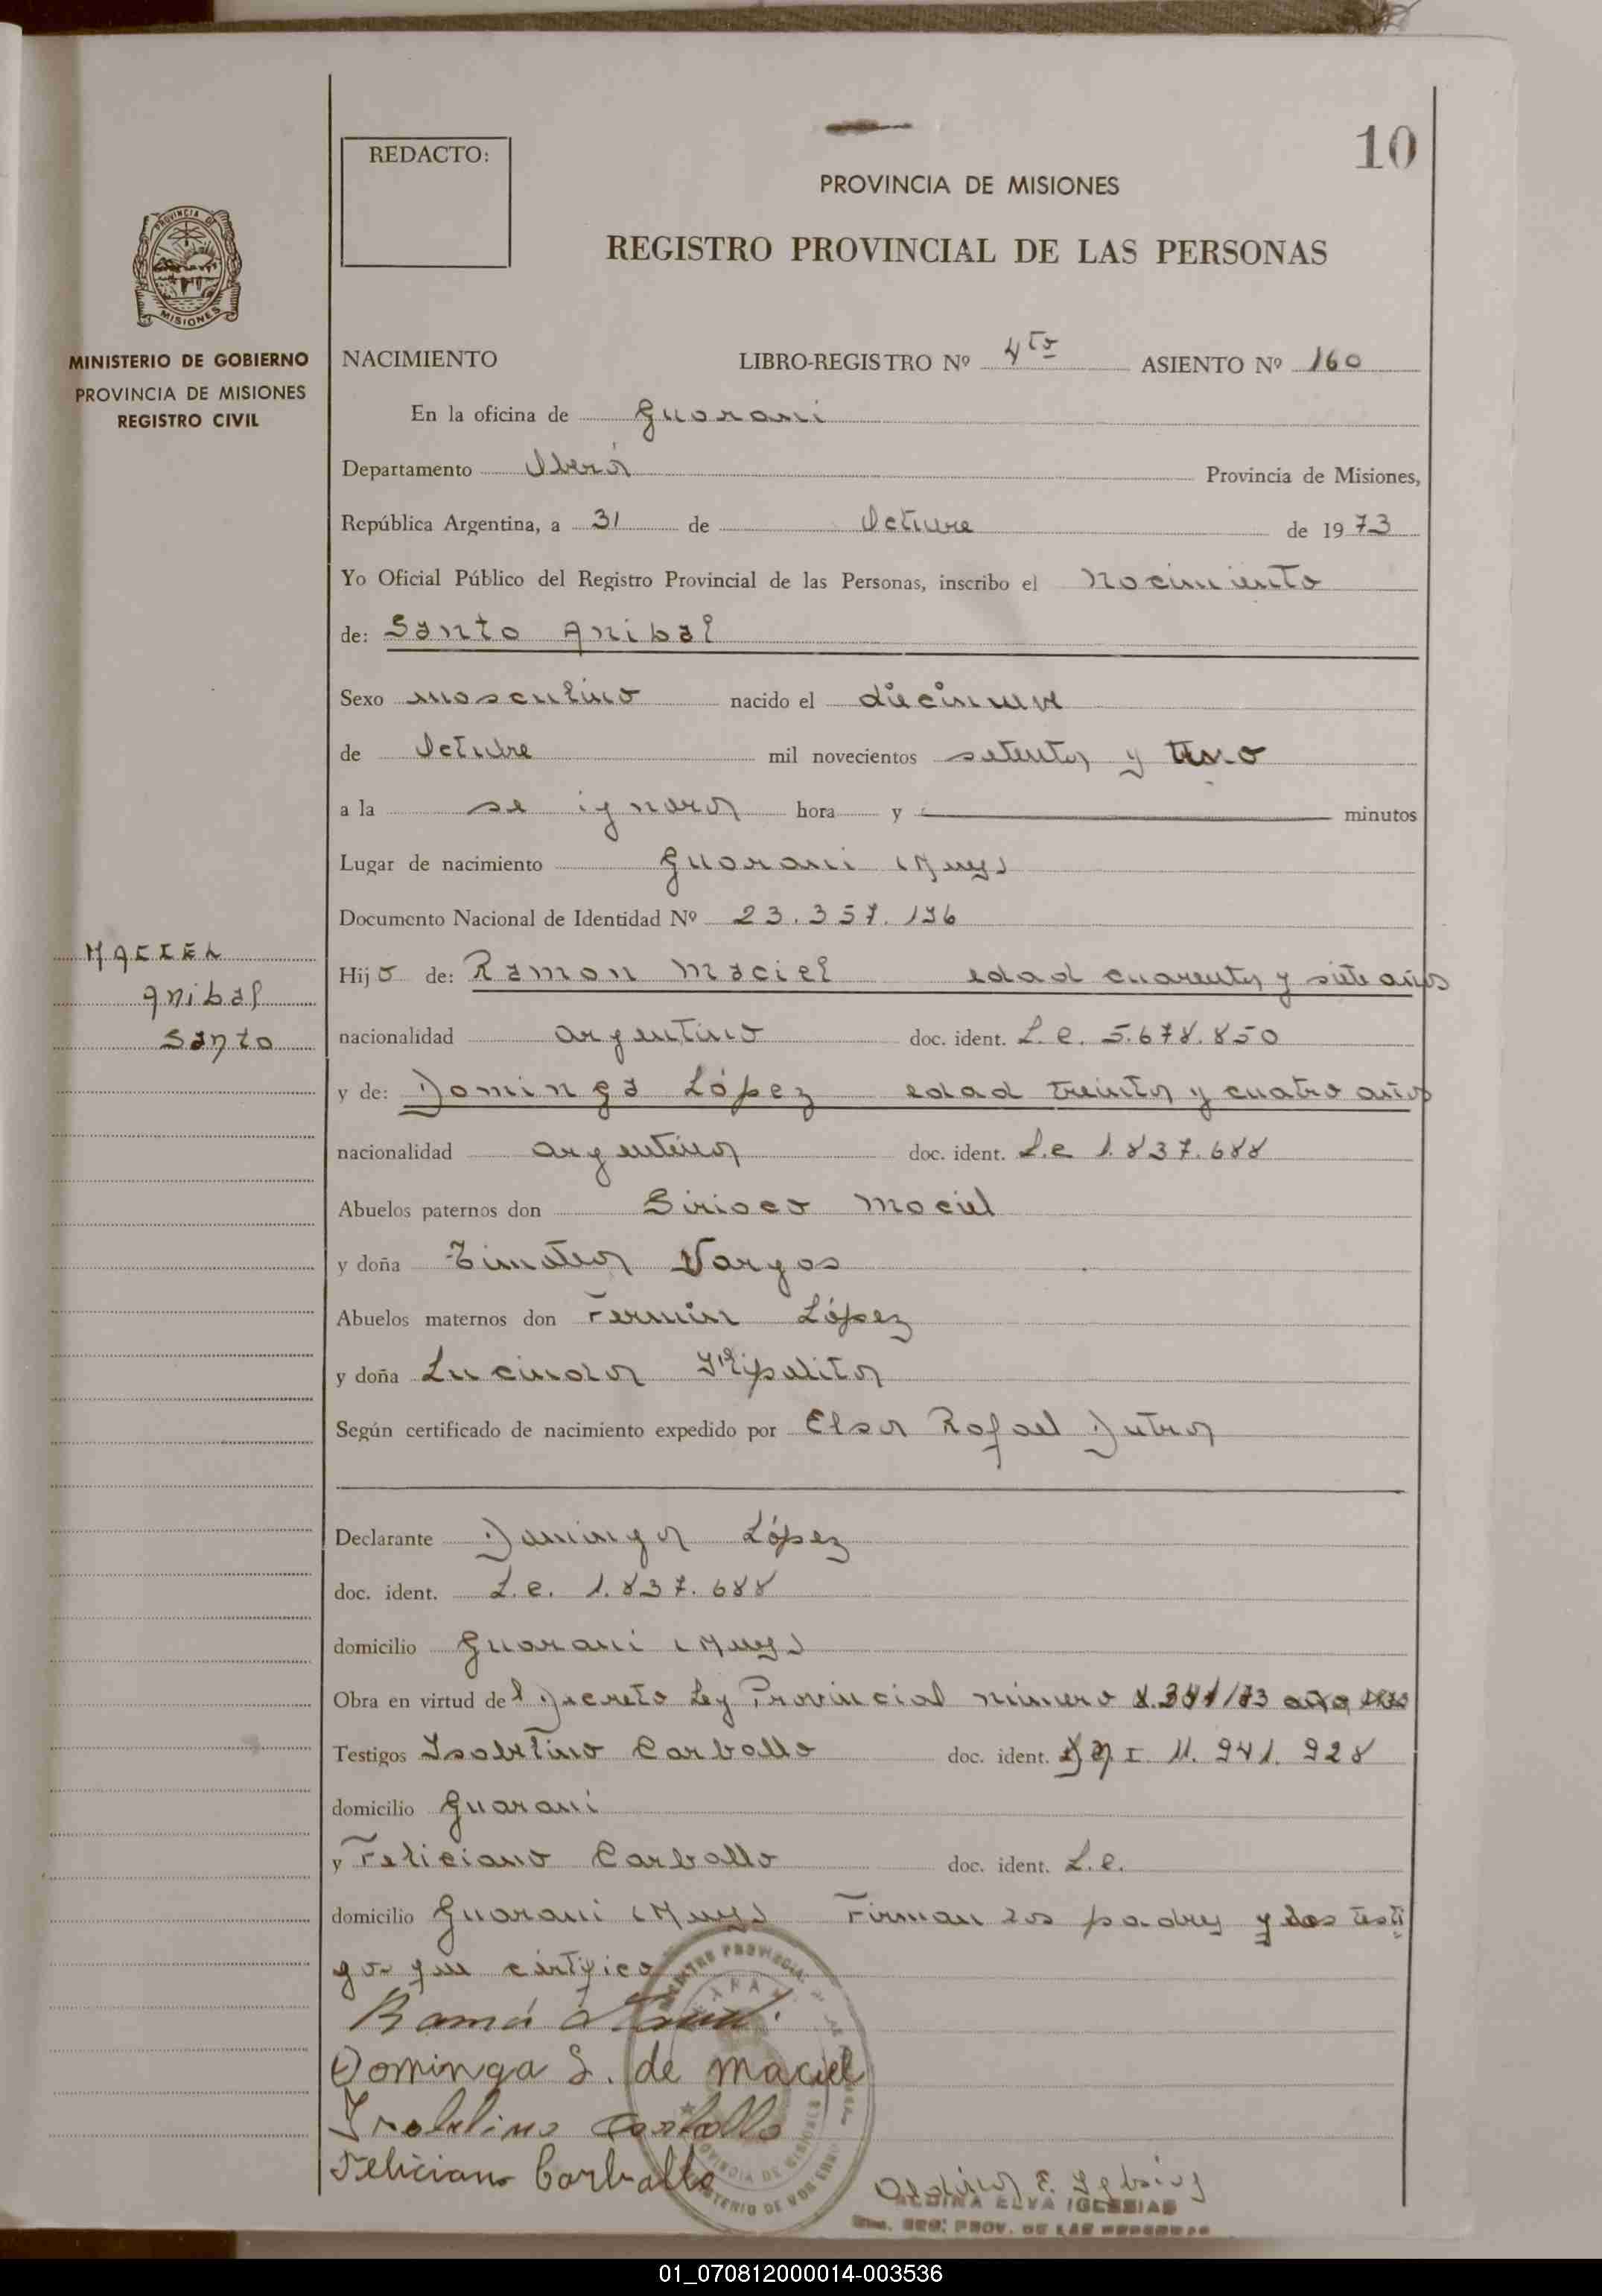 10
REDACTO:
PROVINCIA DE MISIONES
REGISTRO PROVINCIAL DE LAS PERSONAS
PROVINCIA DE
MISIONES
MINISTERIO DE GOBIERNO
PROVINCIA DE MISIONES
REGISTRO CIVIL
NACIMIENTO LIBRO-REGISTRO Nº 4to ASIENTO Nº 160
En la oficina de Guarani
Departamento Oberá Provincia de Misiones,
República Argentina, a 31 de Octubre de 1973
Yo Oficial Público del Registro Provincial de las Personas, inscribo el nacimiento
de: Santo Anibal
Sexo masculino nacido el diecinueve
de Octubre mil novecientos setenta y
a la se ignora hora y minutos
Lugar de nacimiento Guarani (Mnes)
Documento Nacional de Identidad Nº 23.357.196
MACIEL
Anibal
Santo
Hijo de: Ramon Maciel edad cuarenta y siete años
nacionalidad argentino doc. ident. L.e. 5.678.850
y de: Dominga López edad treinta y cuatro años
nacionalidad argentina doc. ident. L.e 1.837.688
Abuelos paternos don Siriaco Maciel
y doña Timotea Vargas
Abuelos maternos don Fermin López
y doña Lucinda Hipolita
Según certificado de nacimiento expedido por Elsa Rafael Dutra
Declarante Dominga López
doc. ident. L.e. 1.837.688
domicilio Guarani (Mnes)
Obra en virtud del Decreto Ley Provincial número
Testigos Isabelino Carballo doc. ident. D N I 11.941.928
domicilio Guarani
y Feliciano Carballo doc. ident. L.e.
domicilio Guarani (Mnes) Firman los padres y los testi
gos que certifico
Ramón Maciel
Dominga L. de maciel
Isabelino Carballo
Feliciano Carballo
Aldina E. Iglesias
ALDINA ELVA IGLESIAS
REG. PROV. DE LAS PERSONAS
01_070812000014-003536